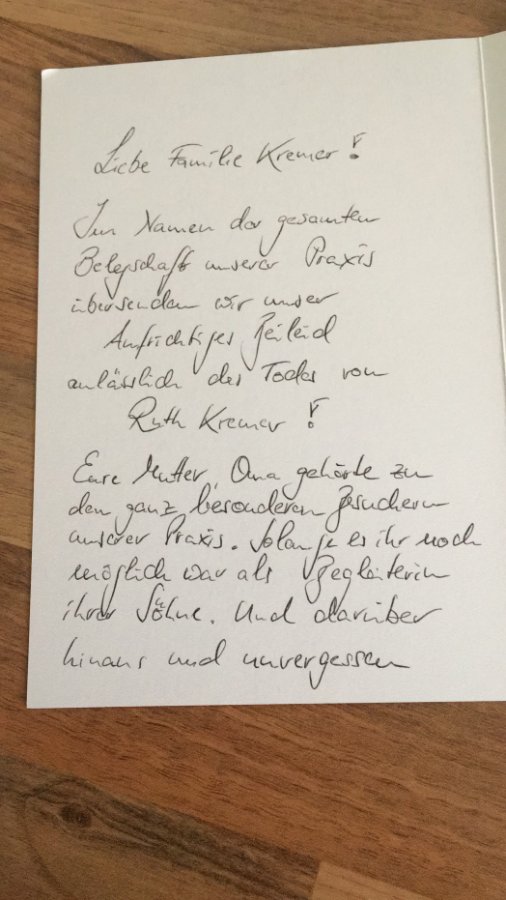 Liebe Familie Kremer!
Im Namen der gesamten
Belegschaft unserer Praxis
übersenden wir unser
Aufrichtiges Beileid
anlässlich des Todes von
Ruth Kremer!
Eure Mutter, Oma gehörte zu
den ganz besonderen Besuchern
unserer Praxis. Solange es ihr noch
möglich war als Begleiterin
ihrer Söhne. Und darüber
hinaus und unvergessen